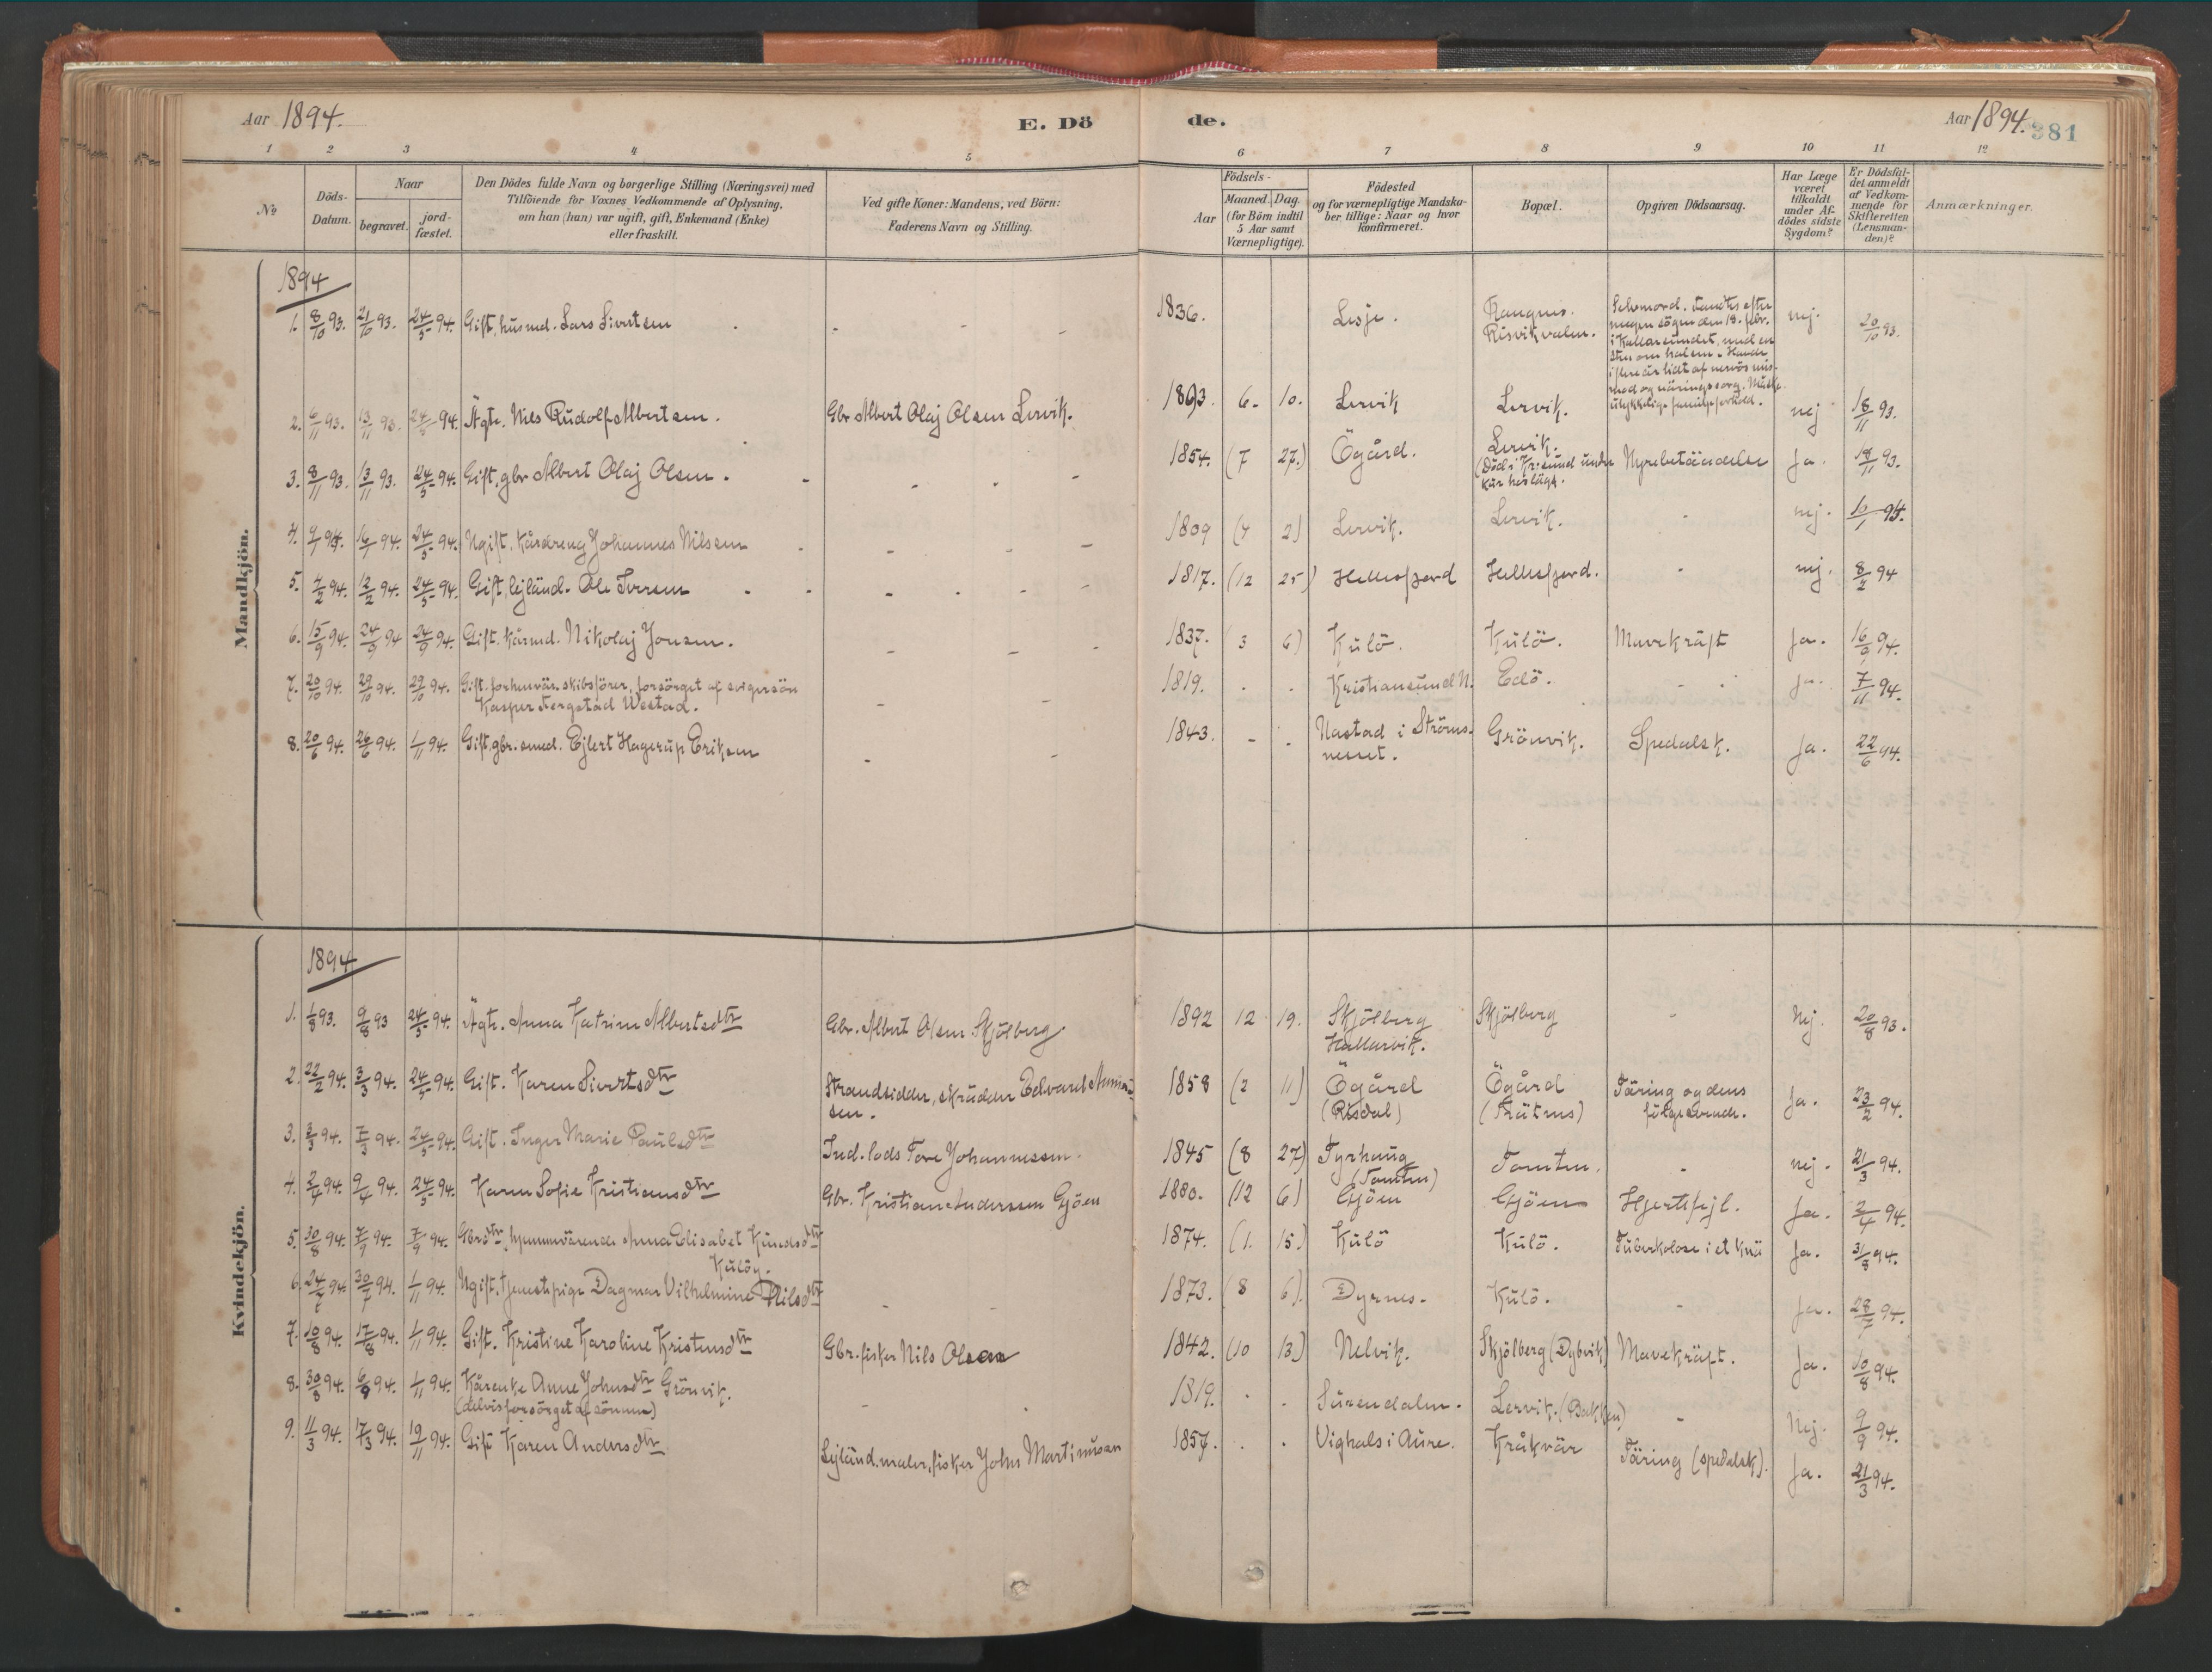 Aar 1894.
E. Dö
de.
Aar 1894.
381
1 2 3 4 5 6 7 8 9 10 11 12
No
Döds-
Datum.
Naar
begravet.
jord-
fæstet.
Den Dödes fulde Navn og borgerlige Stilling (Næringsvei) med
Tilföiende for Voxnes Vedkommende af Oplysning,
om han (hun) var ugift, gift, Enkemand (Enke)
eller fraskilt.
Ved gifte Koner: Mandens, ved Börn:
Faderens Navn og Stilling.
Aar
Födsels-
Maaned. Dag.
(for Börn indtil
5 Aar samt
Værnepligtige).
Födested
og for værnepligtige Mandska-
ber tillige: Naar og hvor
konfirmeret.
Bopæl.
Opgiven Dödsaarsag.
Har Læge
været
tilkaldt
under Af-
dödes sidste
Sygdom?
Er Dödsfal-
det anmeldt
af Vedkom-
mende for
Skifteretten
(Lensman-
den)?
Anmærkninger.
Mandkjön.
1894
1. 8/10 93. 21/10 93. 24/5 94. Gift, husmd. Lars Sivertsen - - - 1836. Lesje. Risvikvalen. nej. 20/10 93.
Selvmord. Fandtes efter
2. 6/11 93. 13/11 93. 24/5 94. Ägte. Nils Rudolf Albertsen. Gbr Albert Olaj Olsen Lervik. 1893. 6. 10. Lervik Lervik. nej 18/11 93.
3. 8/11 93. 13/11 93. 24/5 94. Gift, gbr Albert Olaj Olsen. - - - 1854. (7 27.) Ögård. Lervik. Nyrebetändelse Ja. 18/11 93.
4. 7/1 94. 16/1 94. 24/5 94. Ugift. Kårdreng Johannes Nilssen - - - 1809 (4 2) Lervik. Lervik. - nej. 10/1 94.
5. 4/2 94. 12/2 94. 24/5 94. Gift, lejländ. Ole Iversen - - - 1817. (12 25) Hellesfjord Hellesfjord. - nej. 8/2 94
6. 15/9 94. 24/9 94 24/9 94. Gift. kårmd. Nikolaj Jonsen. - - - 1837. (3 6) Kulö. Kulö. Mavekräft Ja. 16/9 94.
7. 20/10 94. 29/10 94. 29/10 94. Gift. forhenvär. skibsförer, forsörget af svigersön
Kasper Westad. - - 1819. - - Kristiansund N. Edö. - - ja. 7/11 94.
8. 20/6 94. 26/6 94. 1/11 94. Gift, gbr. smed. Ejlert Hagerup Eriksen - - 1843. - - Nastad i Ströms-
nesset. Grönvik. Spedalsk. Ja. 22/6 94.
Kvindekjön.
1894
1. 1/8 93. 9/8 93 24/5 94. Ägte. Anna Katrine Albertsdtr Gbr. Albert Olsen Skjölberg. 1892 12 19. Skjölberg
Hallarvik. Skjölberg - Nej. 20/8 93.
2. 22/2 94. 3/3 94. 24/5 94. Gift. Karen Sivertsdtr Strandsidder, skräder Edvard
sen. 1858 (2 11) Ögård
(Risdal) Ögård Täring og dens
fölgesvende. Ja. 23/2 94.
3. 3/3 94. 7/3 94. 24/5 94. Gift. Inger Marie Paulsdtr Ind. lods Tore Johannessen. 1845 (8 27) Tyrhaug
(Tomten) Tomten. - nej. 21/3 94.
4. 2/4 94. 9/4 94. 24/5 94. Karen Sofie Kristiansdtr Gbr. Kristian Anderssen Gjöen 1880. (12 6) Gjöen Gjöen Hjertefejl. Ja. 2/4 94.
5. 30/8 94. 7/9 94. 7/9 94. Gbrdtr, hjemmvärende Anna Elisabet Knudsdtr
Kulöy. 1874. (1. 15.) Kulö Kulö. Tuberkolose i et knä Ja. 31/8 94.
6. 24/7 94 30/7 94. 1/11 94. Ugift, tjenestepige Dagmar Vilhelmine Nilsdtr - - 1873. (8 6). Dyrnes. Kulö. - Ja. 28/7 94.
7. 10/8 94. 17/8 94. 1/11 94. Gift. Kristine Karoline Kristensdtr Gbr. fisker Nils Olsen 1842. (10 13) Nelvik. Skjölberg (Dybvik) Mavekräft. Ja. 10/8 94.
8. 30/8 94. 6/9 94. 1/11 94. Kårenke Anne Johnsdtr Grönvik.
(delvis forsörget af sönnen) - - 1819. - - Surendalen. Lervik. (Bakken) - Nej. 9/9 94.
9. 11/3 94. 17/3 94. 19/11 94. Gift Karen Andersdtr Lejländ. maler, fisker John Martinusen 1857. - - Vighals i Aure. Kråkvär Täring (spedalsk). Ja. 21/3 94.